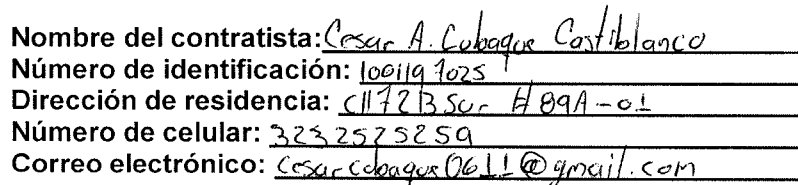 Nombre del contratista: Cesar A. Cubaque Castiblanco
Número de identificación: 1001197025
Dirección de residencia: Cll 72B Sur # 89A-01
Número de celular: 3232525259
Correo electrónico: cesarcubaque0611@gmail.com